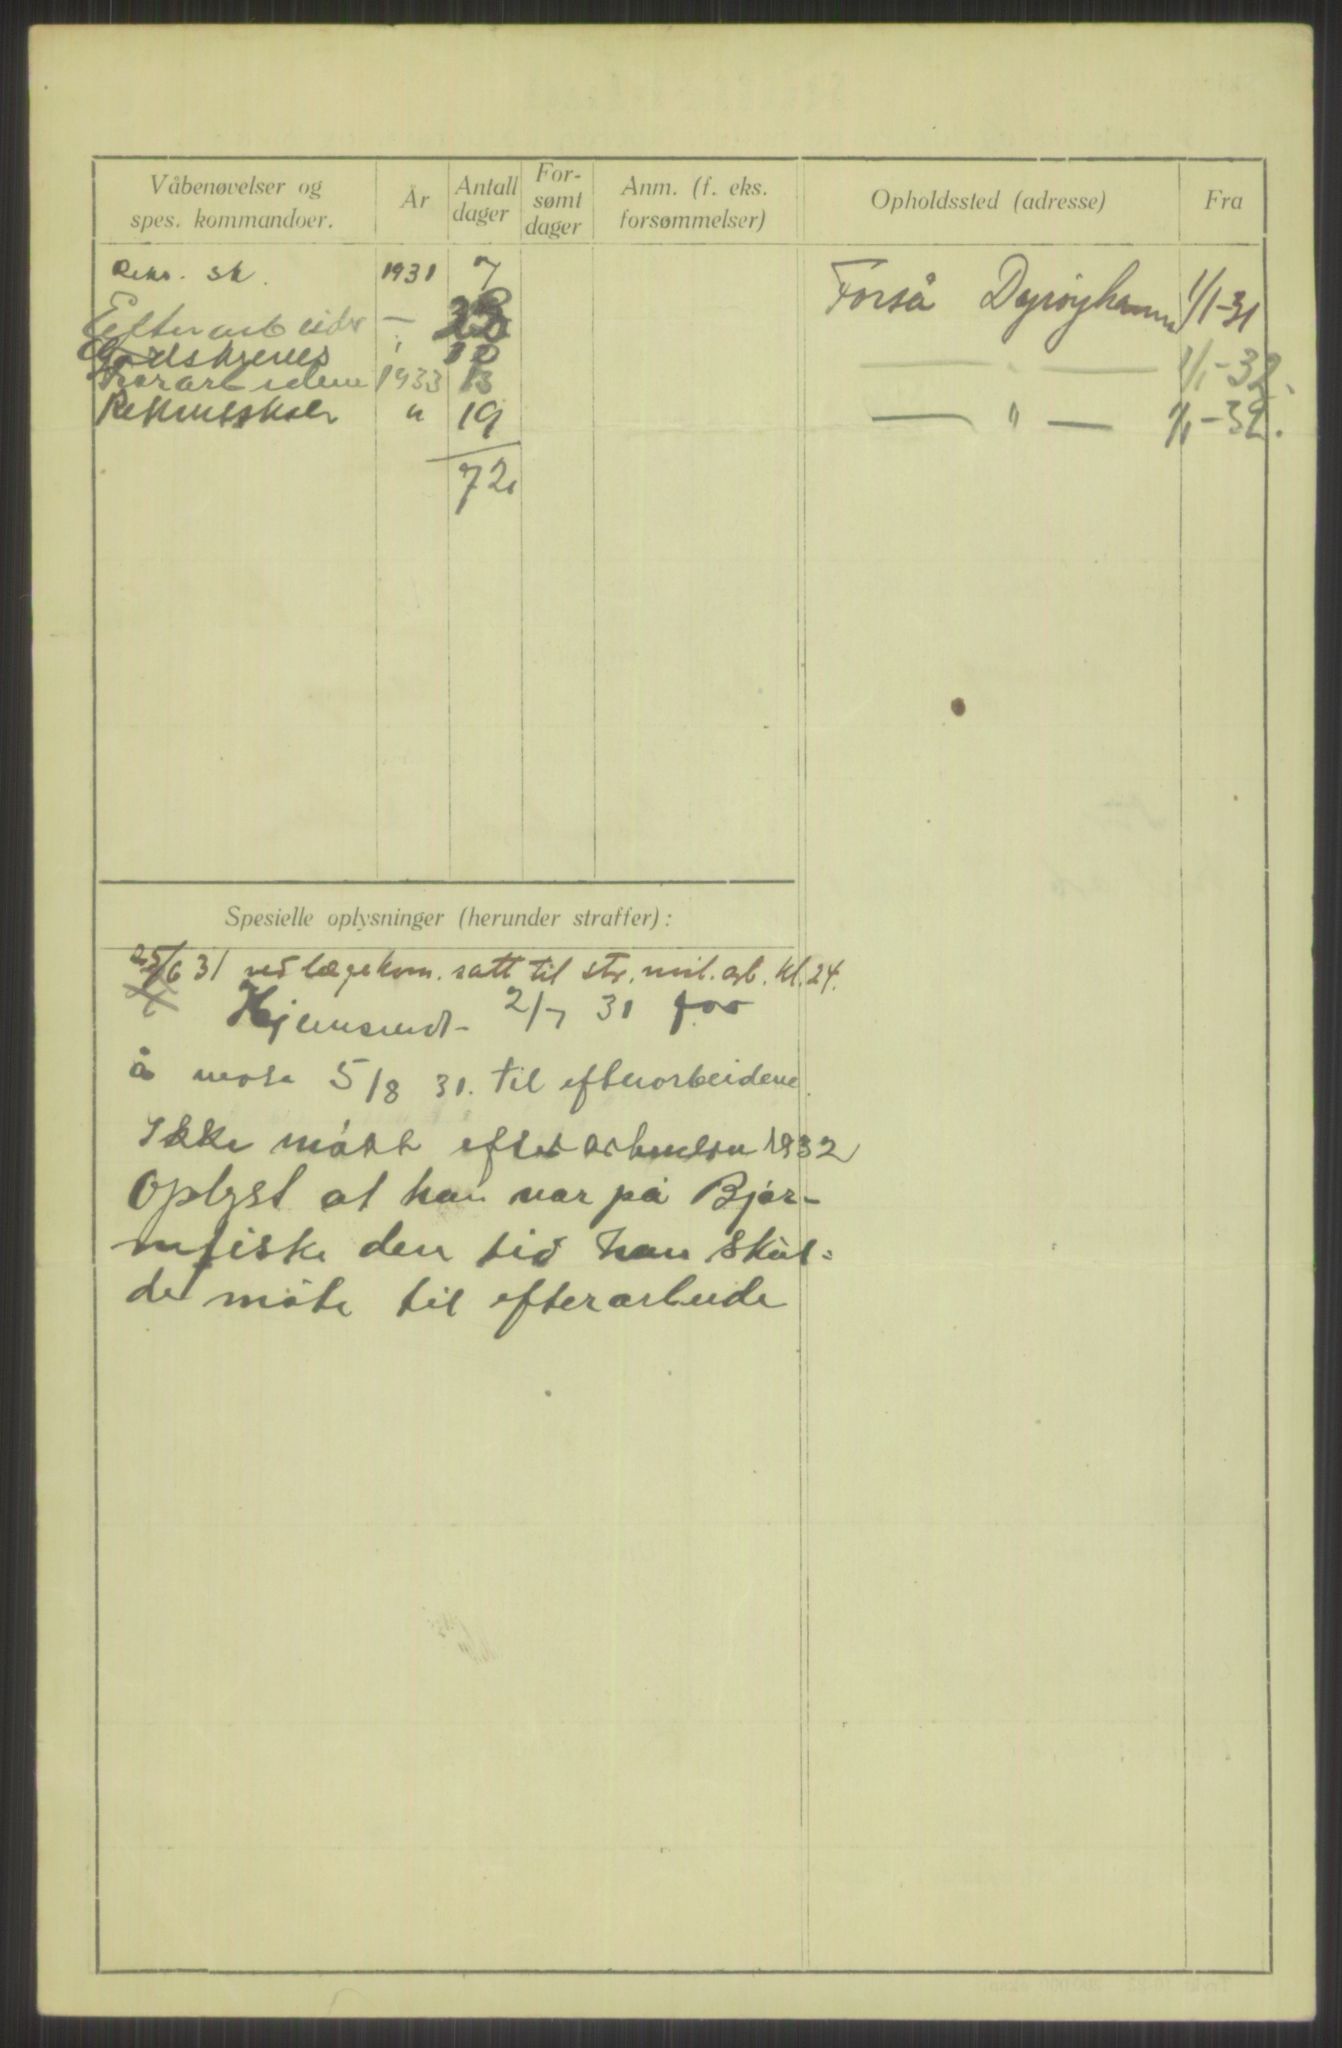 Våbenøvelser og
spes. kommandoer.
År
Antall
dager
For-
sømt
dager
Anm. (f. eks.
forsømmelser)
Opholdssted (adresse)
Fra
Rekr. sk. 1931 7
Efterarbeider —
10
Forarbeidene 1933 13
Rekrutskoler " 19
72
Forså Dyrøyhamn 1/1-31
— " — 1/1-32.
— " — 1/1-32.
Spesielle oplysninger (herunder straffer):
25/6 31 ved lægekom. satt til str. mil. arb. kl. 24.
Hjemsendt 2/7 31 for
å møte 5/8 31. til efterarbeidene
Ikke møtt efterarbeidene 1932
Oplyst at han var på Bjør-
nfiske den tid han skul-
de møte til efterarbeide